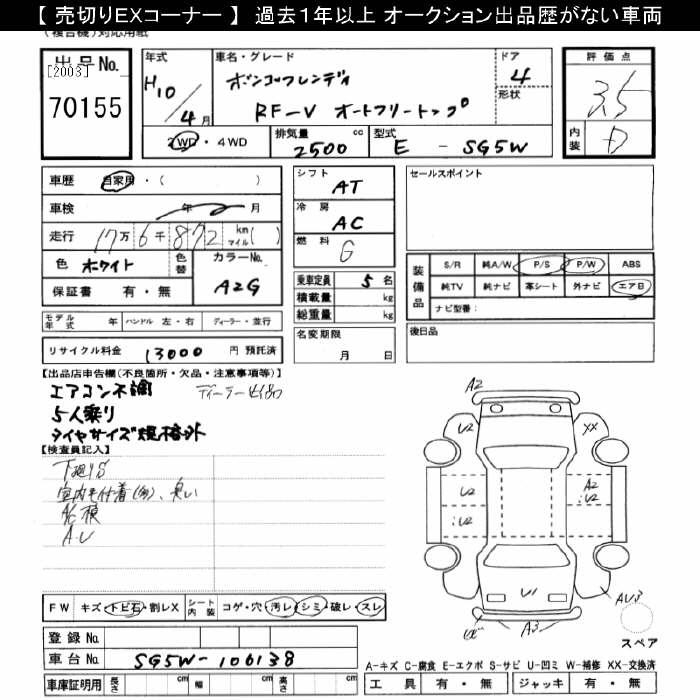 【 売切りEXコーナー 】 過去1年以上 オークション出品歴がない車両
(複合機)対応用紙
出品No.
[2003]
70155
年式
H10/4月
車名・グレード
ボンゴフレンディ
RF-V オートフリートップ
ドア
4
形状
評価点
3.5
内装
D
2WD・4WD
排気量
2500 cc
型式
E - SG5W
車歴 自家用・( )
車検 年 月
走行 17万6千872 km マイル( )
色 ホワイト 色替
カラーNo.
A2G
保証書 有・無
シフト
AT
冷房
AC
燃料
G
セールスポイント
装備品
S/R 純A/W P/S P/W ABS
純TV 純ナビ 革シート 外ナビ エアB
ナビ型番:
乗車定員 5名
積載量 kg
総重量 kg
モデル年式 年 ハンドル 左・右 ディーラー・並行
名変期限
月 日
後日品
リサイクル料金 13000 円 預託済
【出品店申告欄(不良箇所・欠品・注意事項等)】
エアコン不調
5人乗り
タイヤサイズ規格外
【検査員記入】
下廻りS
室内毛付着(多)、臭い
A2
U2
XX
U2
:U2
A2
:U2
U1
A3
スペア
FW キズ・トビ石・割レX シート内装 コゲ・穴・汚レ・シミ・破レ・スレ
登録No.
車台No. SG5W-106138
車庫証明用 長さ cm 幅 cm 高さ cm
A-キズ C-腐食 E-エクボ S-サビ U-凹ミ W-補修 XX-交換済
工具 有・無 ジャッキ 有・無